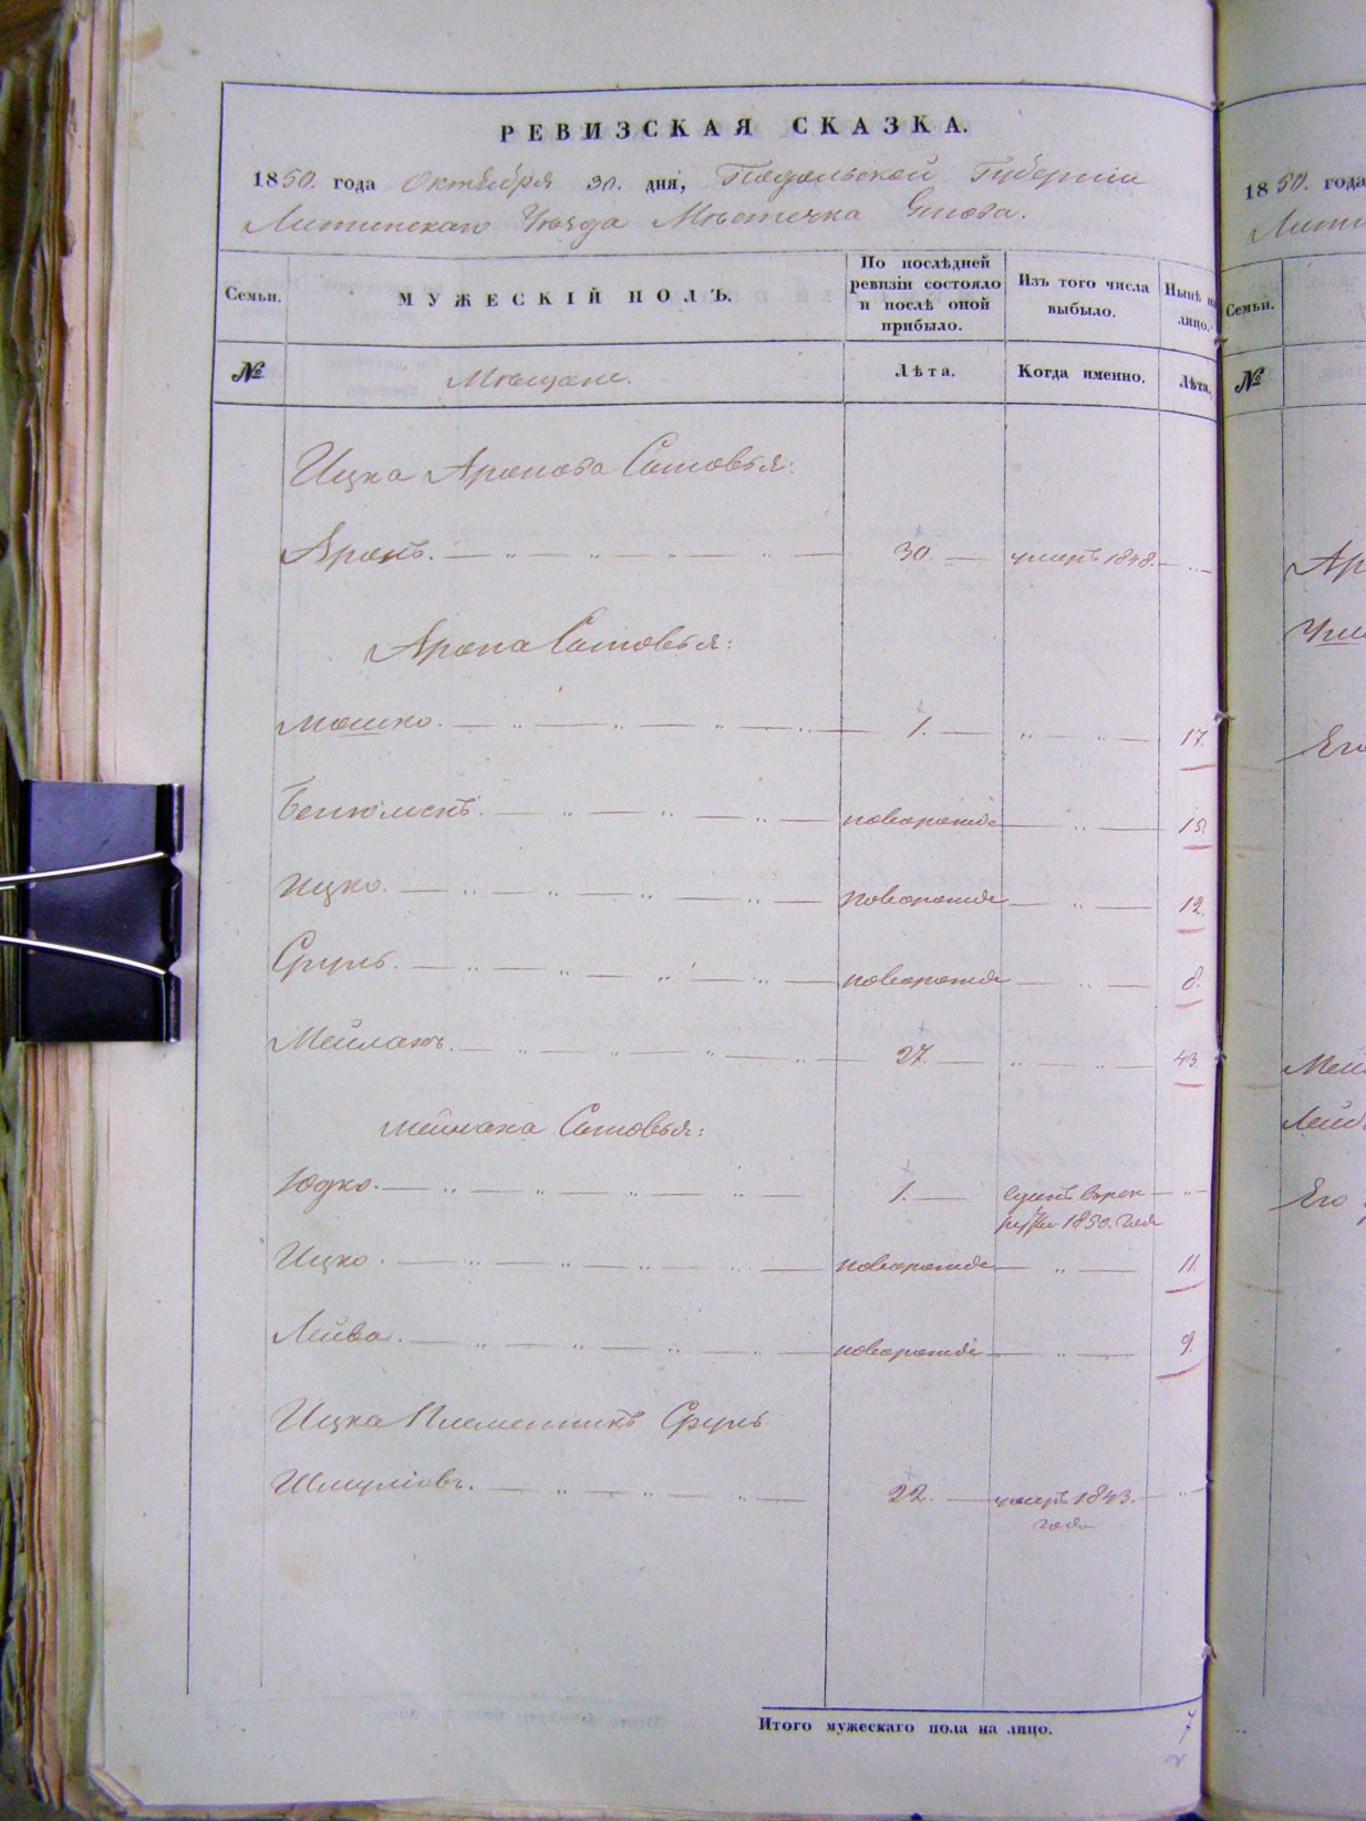 РЕВИЗСКАЯ СКАЗКА.
1850. года Октября 30. дня, Подольской Губерніи
Литинскаго Уѣзда Мѣстечка
Семьи.
МУЖЕСКІЙ ПОЛЪ.
По послѣдней ревизіи состояло и послѣ оной прибыло.
Изъ того числа выбыло.
Нынѣ на лицо.
№
Мѣщане.
Лѣта.
Когда именно.
Лѣта.
Ицка Аронова Сыновья:
Аронъ. 30. умеръ 1848.
Арона Сыновья:
Мошко. 1. 17.
Бенюменъ. новорожде 15.
Ицко. новорожде 12.
Сруль. новорожде 8.
Мейлахъ. 27. 43.
Мейлаха Сыновья:
Юдко. 1. сданъ врек
руты 1850. года
Ицко. новорожде 11.
Лейба. новорожде 9.
Ицка Племенникъ Сруль
Шмуліовъ. 22. умеръ 1843.
года
Итого мужескаго пола на лицо. 7
1850. года
Семьи.
№
Ар
Его
Мей
Лей
Его